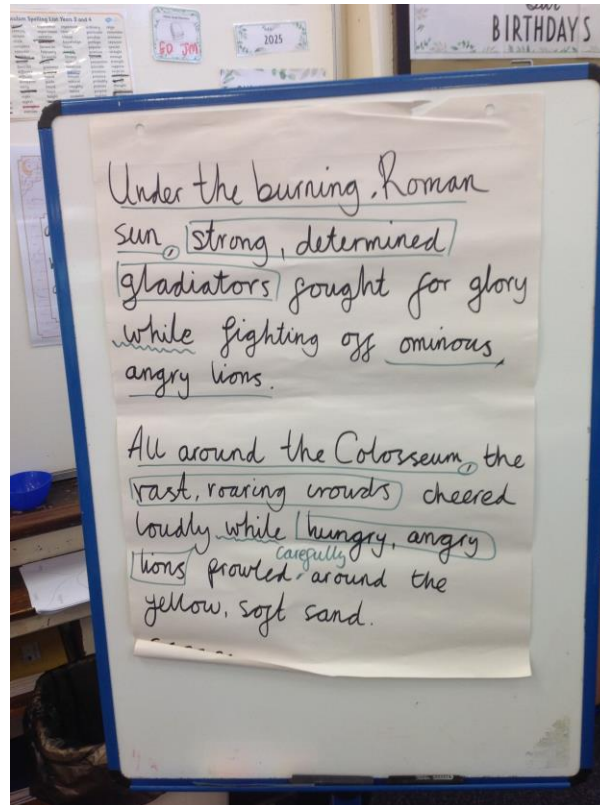 Spelling List Years 3 and 4
ED JM
2025
BIRTHDAYS
Under the burning, Roman
sun, strong, determined
gladiators fought for glory
while fighting off ominous,
angry lions.
All around the Colosseum, the
vast, roaring crowds cheered
loudly while hungry, angry
carefully
lions prowled around the
yellow, soft sand.